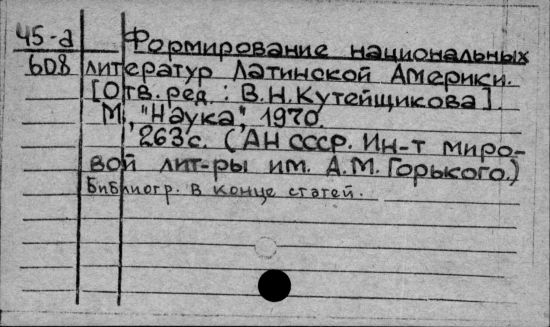 45-д Формирование национальных
608 литератур Латинской Америки.
[Отв. ред.: В.Н.Кутейщикова].
М., "Наука", 1970.
263с. (АН СССР. Ин-т миро-
вой лит-ры им. А.М.Горького.)
Библиогр. в конце статей.